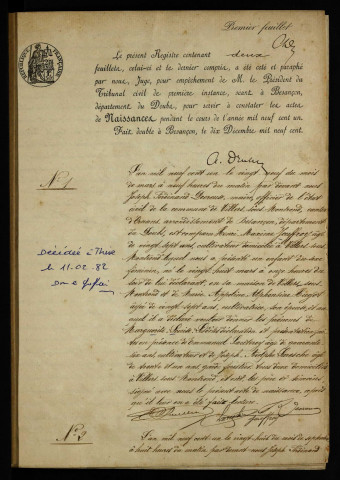 Premier feuillet
Le présent Registre contenant deux
feuillets, celui-ci et le dernier compris, a été coté et paraphé
par nous, Juge, pour empêchement de M. le Président du
Tribunal civil de première instance, séant à Besançon,
département du Doubs, pour servir à constater les actes
de Naissances pendant le cours de l'année mil neuf cent un
Fait double à Besançon, le dix Décembre mil neuf cent.
N°1
L'an mil neuf cent un le vingt neuf du mois
de mars à neuf heures du matin par devant nous
Joseph Ferdinand maire officier de l'état
civil de la commune de Villers sous Montrond, canton
d'Ornans arrondissement de Besançon, département
du Doubs, est comparu Henri
âgé de vingt sept ans, cultivateur domicilié à Villers sous
Montrond, lequel nous a présenté un enfant du sexe
féminin, né le vingt huit mars à onze heures du
soir de lui déclarant, en sa maison de Villers sous
Montrond et de Alphonsine
âgée de vingt sept ans, cultivatrice, son épouse, et
auquel il a déclaré vouloir donner les prénoms de
Marguerite
en présence de Emmanuel âgé de quarante
ans, cultivateur et de Joseph
de ans, tous deux domiciliés
à Villers sous Montrond et ont les père et témoins
signé avec nous le présent acte de naissance, après
qu'il leur en a été fait lecture
Décédée à
le 11.02.82
N°2
L'an mil neuf cent un le vingt huit du mois de
à huit heures du matin par devant nous Joseph Ferdinand